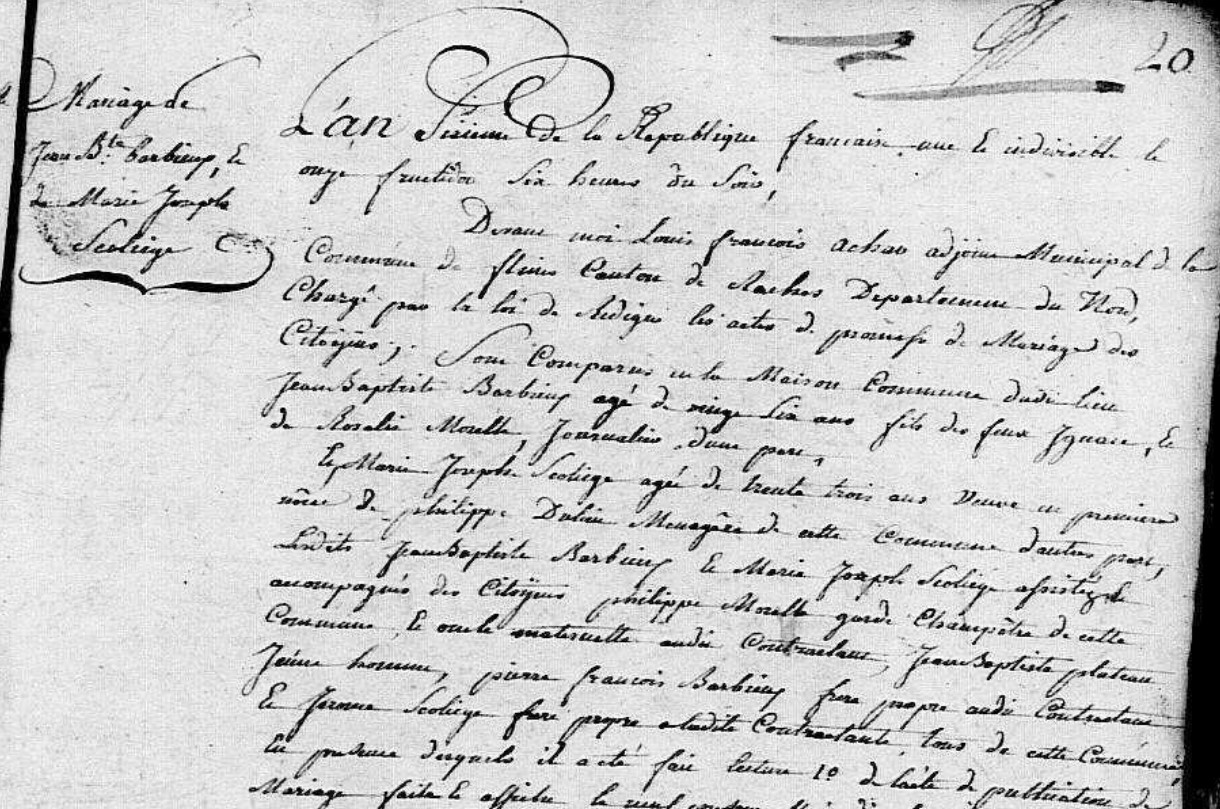 20
Mariage de
Jean Bte Barbieux, Et
de Marie Joseph
Scoliége
L'an Sixieme de la Republique francaise une Et indivisible le
onze fructidor Six heures du Soir,
Devant moi Louis francois achar adjoint Municipal de la
Commune de flines Canton de Raches Departement du Nord,
Chargé par la loi de Rediger les actes de promesse de Mariage des
Citoÿens; Sont Comparus en la Maison Commune dudit lieu
Jean Baptiste Barbieux agé de vingt Six ans fils des feux Ignace, Et
de Rosalie Morelle, Journalier d'une part,
Et Marie Joseph Scoliége agée de trente trois ans Veuve en premiere
nôce de philippe Menagére de cette Commune d'autre part,
Lesdits Jean Baptiste Barbieux Et Marie Joseph Scoliége assistés Et
accompagnés des Citoÿens philippe Morelle garde Champêtre de cette
Commune, Et oncle maternelle audit Contractant, Jean Baptiste plateau
Jeune homme, pierre francois Barbieux frere propre audit Contractant
Et Jerome Scoliége frere propre a ladite Contractante, tous de cette Commune,
En presence desquels il a été fait lecture 1o de l'acte de publication de
Mariage faite Et affiche le